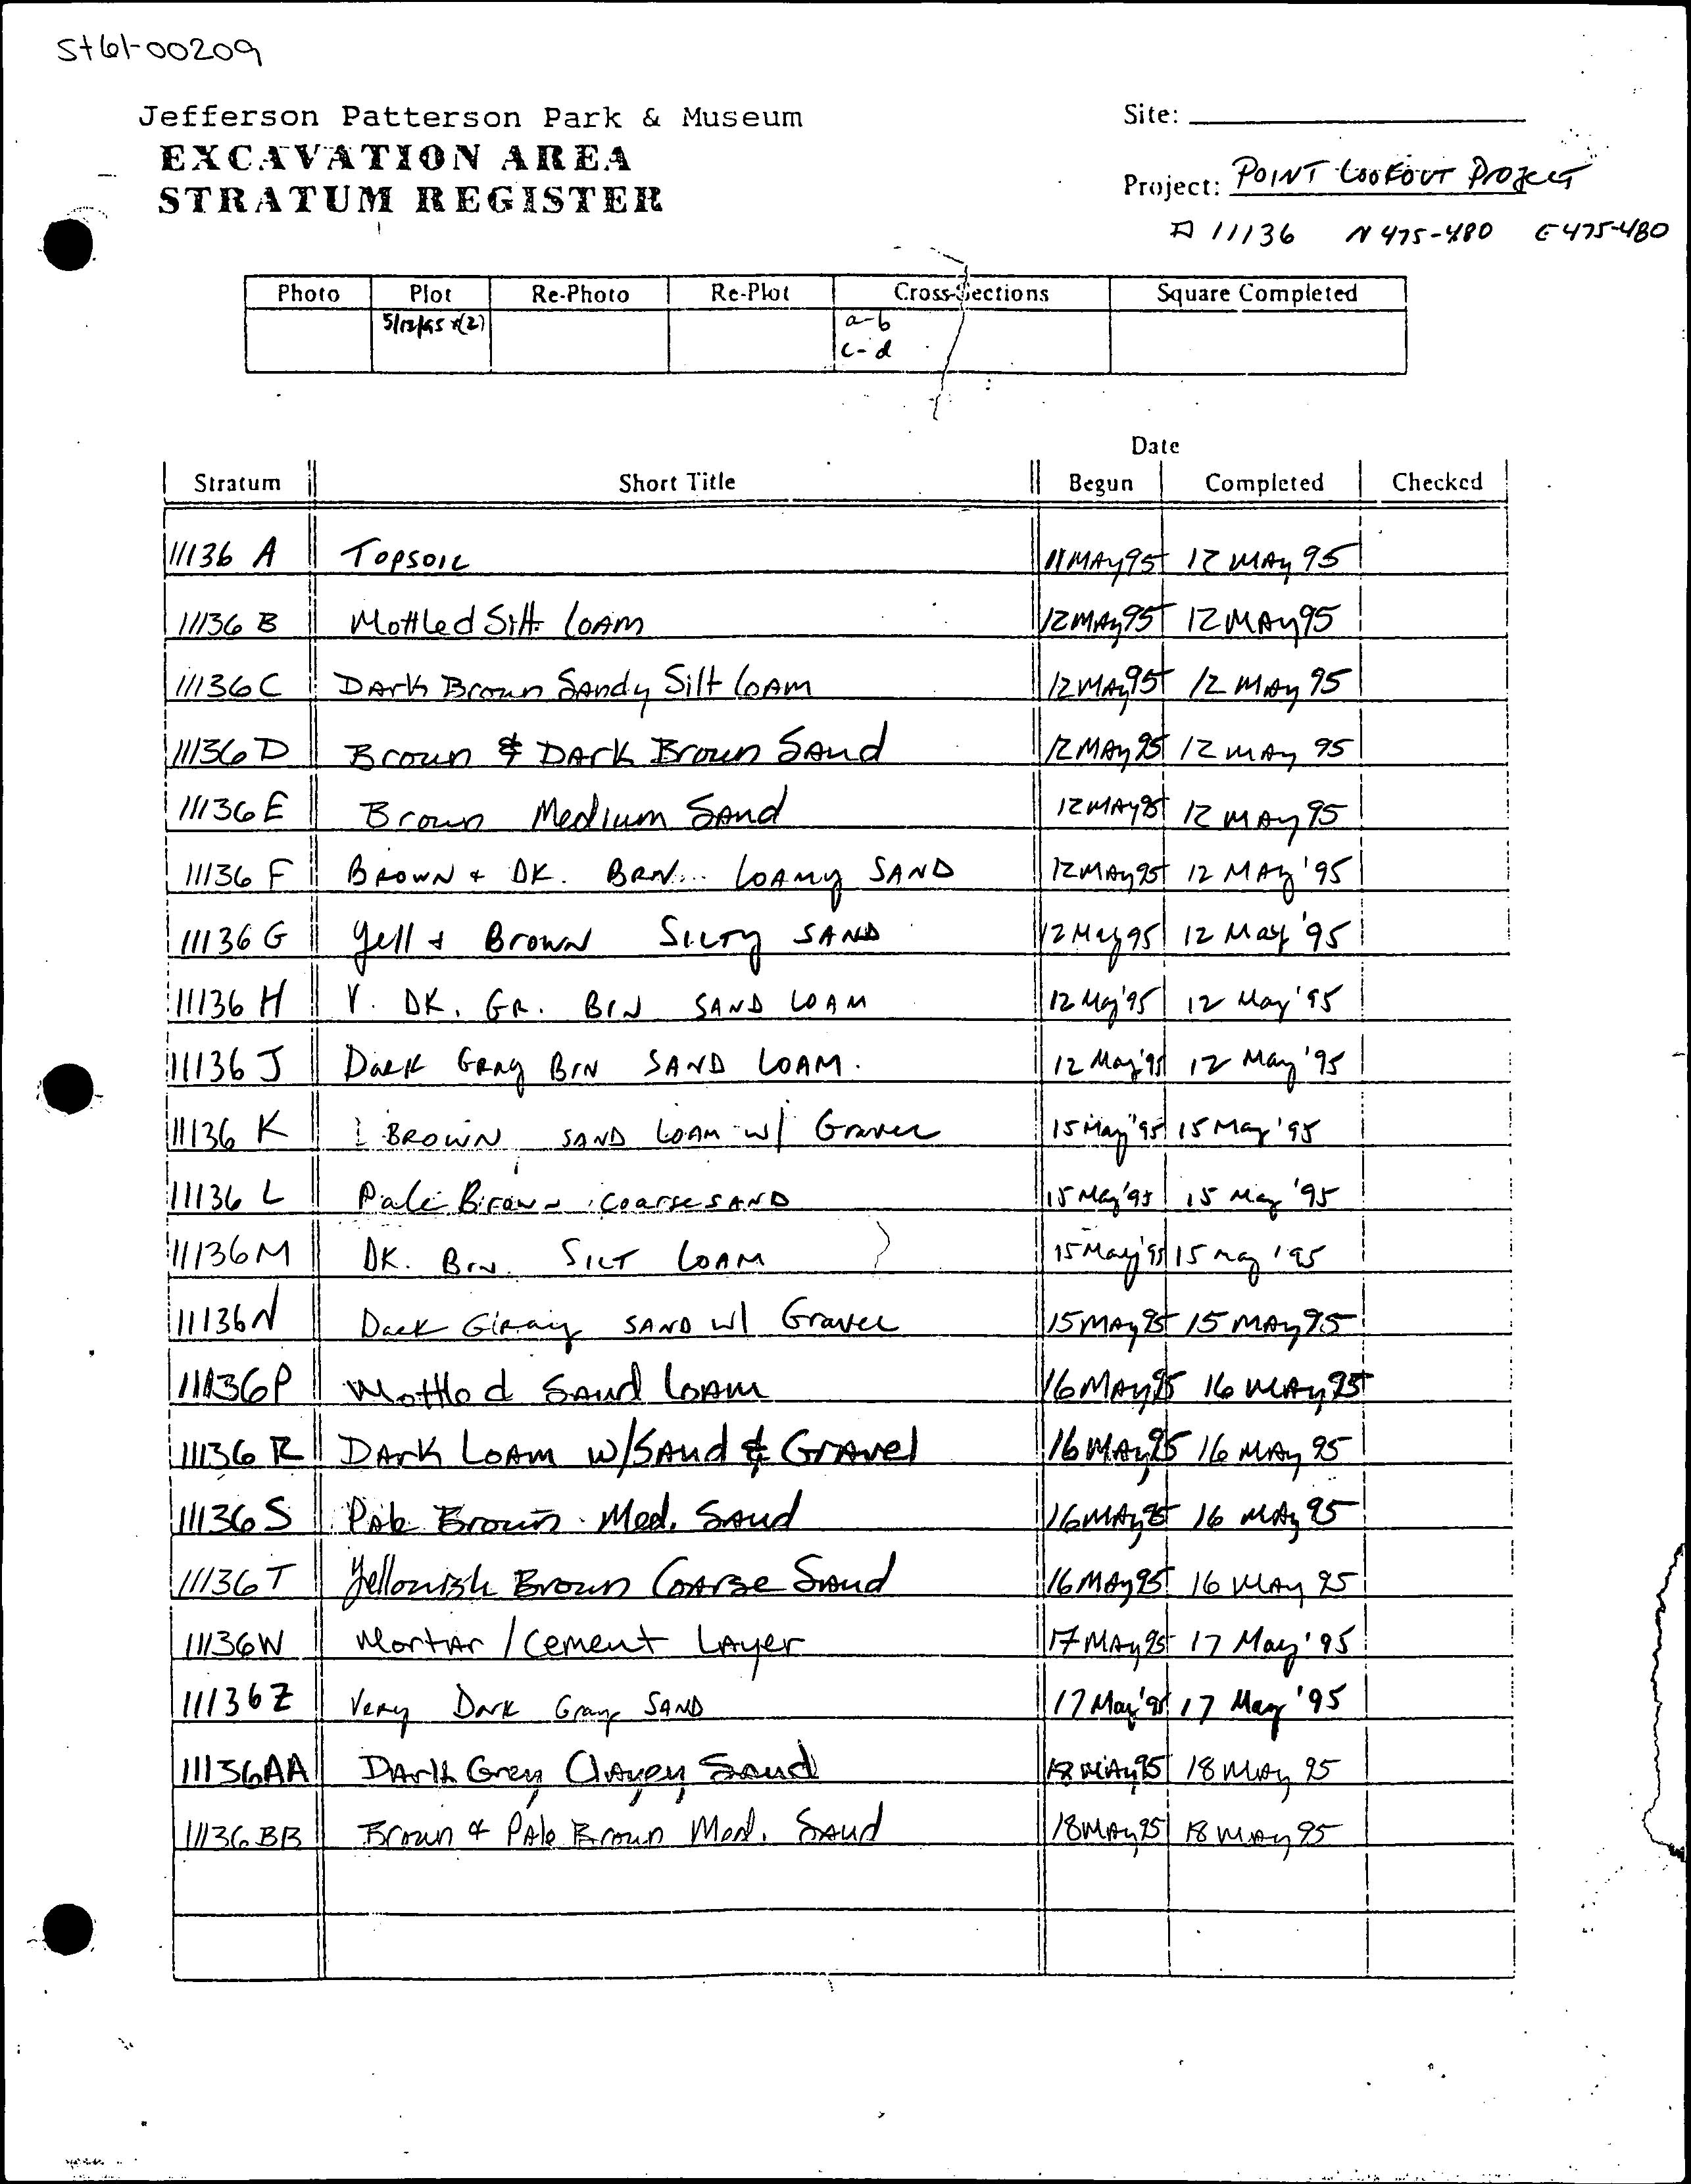 St61-00209
Jefferson Patterson Park & Museum
EXCAVATION AREA
STRATUM REGISTER
Site:
Project: POINT LOOKOUT PROJECT
11136 N 475-480 E 475-480
Photo Plot Re-Photo Re-Plot Cross-Sections Square Completed
5/12/95 (2) a-b
c-d
Date
Stratum Short Title Begun Completed Checked
11136 A TOPSOIL 11 MAY 95 12 MAY 95
11136 B Mottled Silt LOAM 12 MAY 95 12 MAY 95
11136 C DArk Brown SAndy Silt LOAM 12 MAY 95 12 MAY 95
11136 D Brown & DArk Brown SAnd 12 MAY 95 12 MAY 95
11136 E Brown Medium SAnd 12 MAY 95 12 MAY 95
11136 F BROWN + DK. BRN. LOAMY SAND 12 MAY 95 12 MAY '95
11136 G Yell + BROWN SILTY SAND 12 May 95 12 May '95
11136 H V. DK. GR. BRN SAND LOAM 12 May '95 12 May '95
11136 J DARK GRAY BRN SAND LOAM. 12 May '95 12 May '95
11136 K BROWN SAND LOAM w/ Gravel 15 May '95 15 May '95
11136 L Pale Brown coarse SAND 15 May '95 15 May '95
11136 M DK. Brn. SILT LOAM 15 May '95 15 May '95
11136 N Dark Gray SAND w/ Gravel 15 MAY 95 15 MAY 95
11136 P Mottled SAnd LOAM 16 MAY 95 16 MAY 95
11136 R DArk LOAM w/SAnd & GrAvel 16 MAY 95 16 MAY 95
11136 S PAle Brown Med. SAnd 16 MAY 95 16 MAY 95
11136 T Yellowish Brown COArse SAnd 16 MAY 95 16 MAY 95
11136 W MortAr / Cement LAyer 17 MAY 95 17 May '95
11136 Z Very Dark Gray SAND 17 May '95 17 May '95
11136 AA DArk Grey ClAyey SAnd 18 MAY 95 18 MAY 95
11136 BB Brown & PAle Brown Med. SAnd 18 MAY 95 18 MAY 95